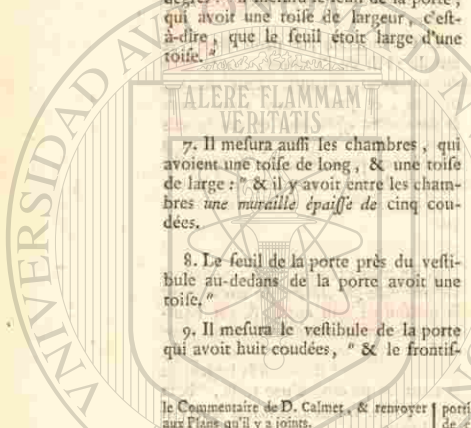 qui avoit une toiſe de largeur, c'eſt-
à-dire, que le ſeuil étoit large d'une
toiſe. "
ALERE FLAMMAM
VERITATIS
7. Il meſura auſſi les chambres, qui
avoient une toiſe de long, & une toiſe
de large : " & il y avoit entre les cham-
bres une muraille épaiſſe de cinq cou-
dées.
8. Le ſeuil de la porte près du veſti-
bule au-dedans de la porte avoit une
toiſe. "
9. Il meſura le veſtibule de la porte
qui avoit huit coudées, " & le frontiſ-
le Commentaire de D. Calmet, & renvoyer
aux Plans qu'il y a joints.